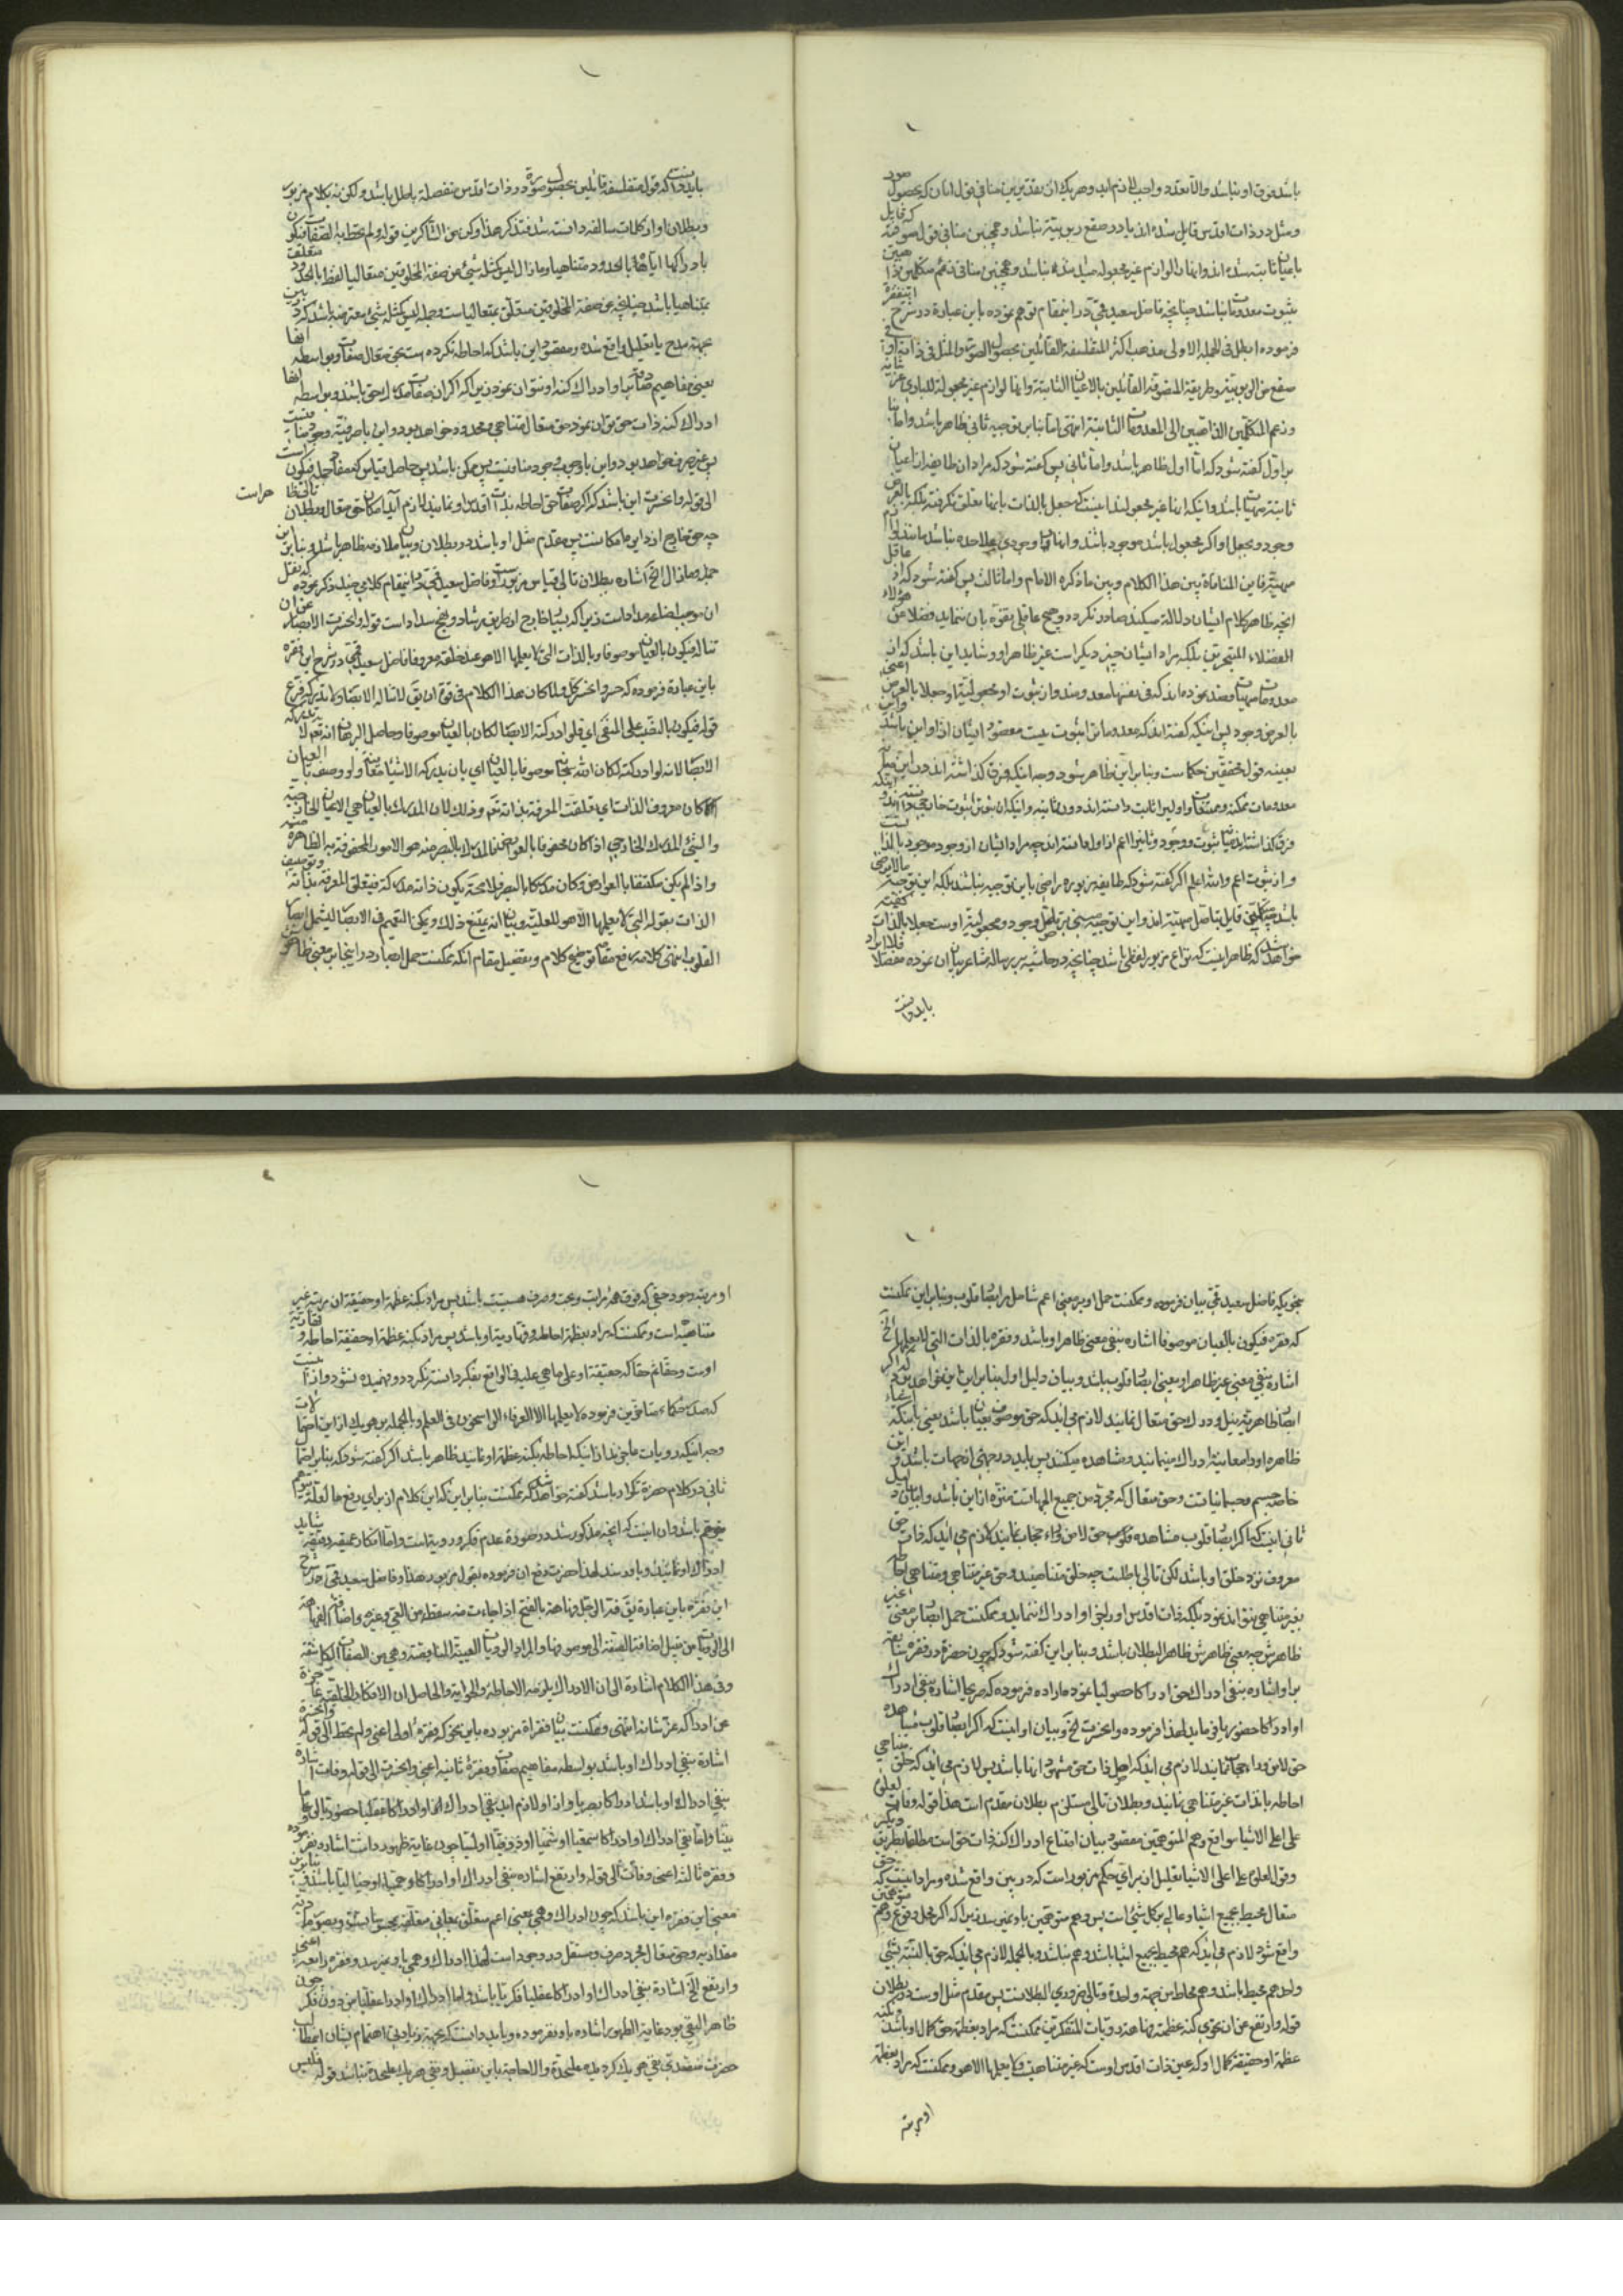 باشد فوق او نباشد والا تعدد واجب لازم آید و هر یک از تقدیرین منافی قول آنان که بحصول صور
و مثل در ذات اقدس قایل شده اند یا در صقع ربوبیته نباشد و همچنین منافی قول صوفیه که قایل
باعیان ثابته شده اند و آنها را لوازم غیر مجعوله میدانند نباشد و همچنین منافی زعم متکلمین
بثبوت معدومات نباشد چنانچه فاضل سعید قمی در اینمقام توهم نموده باین عبارة در شرح این فقره
فرموده ابطل فی الجملة الاولی مذهب اکثر المتفلسفة القائلین بحصول الصور والمثل فی ذاته او فی
صقع من الربوبیة و طریقة المتصوفة القائلین بالاعیان الثابتة وانها لوازم غیر مجعولة للباری عز شانه
وزعم المتکلمین الذاهبین الی المعدومات الثابتة انتهی اما بنابر توجیه ثانی ظاهر باشد واما بنا
بر اول گفته شود که اما اول ظاهر باشد واما ثانی پس گفته شود که مراد ان طایفه از اعیان
ثابته مهیات باشد و اینکه آنها غیر مجعولند اینست که جعل بالذات بآنها تعلق نگرفته بلکه بالعرض
وجود و بجعل او اگر مجعول باشد موجود باشند و آنها را وجودی علاحده نباشد مانند لوازم
مهیته فاین المنافاة بین هذا الکلام و بین ما ذکره الامام واما ثالث پس گفته شود که از
انچه ظاهر کلام ایشان دلالت میکند صادر نگردد و هیچ عاقلی تفوه بآن ننماید فضلا عن هؤلاء
الفضلاء المتبحرین بلکه مراد ایشان چیز دیگر است غیر ظاهر او و شاید این باشد که از
معدومات مهیات قصد نموده اند که فی نفسها معدومند و از ثبوت او مجعولیة او جعلا بالعرض اعنی
بالعرض وجود پس اینکه گفته اند که معدومات را ثبوت هست مقصود ایشان اذ او این باشد و این
بعینه قول محققین حکماست و بنابراین ظاهر شود وجه اینکه فرق گذاشته اند در این میان
معدومات ممکنه و ممتنعات و اولین را ثابت دانسته اند دون ثانیه و اینکه
فرق گذاشته اند میان ثبوت و وجود و ثانی را اعم از اول دانسته اند چه مراد ایشان از وجود موجود بالذات
و از ثبوت اعم والله اعلم اگر گفته شود که طایفه مزبوره راضی باین توجیه نباشند بلکه این توجیه مالایرضی
باشد چه متکلمین قایل بتاصل مهیته اند و این توجیه مبنی بر تاصل وجود و مجعولیة اوست جعلا بالذات گفته
خواهد شد که ظاهر اینست که نزاع مزبور لفظی باشد چنانچه در حاشیه بر رساله مشاعر بیان آن نموده مفصلا فلا ایراد
باید دانست
باید دانست که قول متفلسفه قائلین بحصول صورة در ذات اقدس متفصلة باطل باشد و لکن نه بکلام مزبور
و بطلان او از کلمات سالفه دانسته شد فتذکر هذا و کن من الشاکرین قوله و لم تحط به الصفات فیکون
بادراکها ایاها بالحدود متناهیا و ما زال لیس کمثله شیئ عن صفة المخلوقین متعالیا لفظ بالحدود متعلق
بمتناهیا باشد چنانچه عن صفة المخلوقین متعلق بمتعالیا است و جمله لیس کمثله شیئ معترضه باشد که در بین
بجهة مدح یا تعلیل واقع شده و مقصود این باشد که احاطه نکرده است بحق متعال صفات و بواسطه آنها
یعنی مفاهیم صفات او ادراک کنه او نتوان نمود زیرا که اگر آن صفات مدرک حق باشند و بواسطه آنها
ادراک کنه ذات حق توان نمود حق متعال متناهی و محدود خواهد بود و این با صرفیة وجود منافیست
پس غیر صرف خواهد بود و این با وجوب وجود منافیست پس ممکن باشد پس حاصل قیاس که مفاد جمله فیکون است
الی قوله وانحسرت این باشد که اگر صفات حق احاطه بذات اقدس او نمایند لازم آید امکان حق متعال و بطلان تالی ظاهر است
چه حق خارج از دایره امکانست پس مقدم مثل او باشد در بطلان و بیان ملازمه ظاهر باشد و بنابراین
جمله و ما زال الخ اشاره ببطلان تالی قیاس مزبور است و فاضل سعید قمی در اینمقام کلامی چند ذکر نموده که نقل
آن موجب اضاعه مداد است زیرا که بسیار خارج از طریق رشاد و نهج سداد است قوله وانحسرت الابصار عن ان
تناله فیکون بالعیان موصوفا و بالذات التی لا یعلمها الا هو عند خلقه معروفا فاضل سعید قمی در شرح این فقره
باین عبارة فرموده که حسر وانحسر کل ولما کان هذا الکلام فی قوة ان یق لا تناله الابصار ولا تدرکه فرع
قوله فیکون بالنصب علی المنفی ای فلو ادرکته الابصار لکان بالعیان موصوفا و حاصل البرهان انه تعالی لا تدرکه
الابصار لانه لو ادرکته لکان الله سبحانه موصوفا بالعیان ای بان یدرکه الاشیاء متعاینة ولو وصف بالعیان
لکان معروف الذات ای تعلقت المعرفة بذاته تعم و ذلک لان المدرک بالعیان هی الاعیان الخارجیة
والشئ المدرک الخارجی اذا کان محفوفا بالعوارض فالمدرک بالبصر منه هو الامور المحفوفة به الظاهرة منه
واذا لم یکن مکتنفا بالعوارض وکان مدرکا بالبصر فلا محة یکون ذاته مدرکة فیتعلق المعرفة بذاته و توصیف
الذات بقوله التی لا یعلمها الا هو للعلیة و بیان انه یمتنع ذلک و یمکن التعمیم فی الابصار لیشمل ابصار
القلوب انتهی کلامه رفع مقامه توضیح کلام و تفصیل مقام آنکه ممکنست حمل ابصار در اینجا بر معنی ظاهر
بنحویکه فاضل سعید قمی بیان فرموده و ممکنست حمل او بر معنی اعم شامل مر ابصار قلوب و بنابراین ممکنست
که فقره فیکون بالعیان موصوفا اشاره بنفی معنی ظاهر او باشد و فقره بالذات التی لا یعلمها الخ
اشاره بنفی معنی غیر ظاهر او یعنی ابصار قلوب باشد و بیان دلیل اول بنابراین این خواهد بود که اگر
ابصار ظاهریه نیل و درک حق متعال نمایند لازم می آید که حق موصوف بعیان باشد یعنی باینکه
ظاهره او را معاینة ادراک مینمایند و مشاهده میکنند پس باید در جهتی از جهات باشد و این
خاصه جسم و جسمانیاتست و حق متعال که مجرد من جمیع الجهاتست منزه از این باشد و بیان دلیل
ثانی اینست که اگر ابصار قلوب مشاهده قلوب حق لا من وراء حجاب نمایند لازم می آید که ذات حق
معروف نزد خلق او باشد لکن تالی باطلست چه خلق متناهیند و حق غیر متناهی و متناهی احاطه
بغیر متناهی نتواند نمود بلکه ذات اقدس او را بنحو او ادراک ننماید و ممکنست حمل ابصار بر معنی غیر
ظاهرش چه معنی ظاهرش ظاهر البطلان باشد و بنابراین گفته شود که چون حضرة در فقره سابقه
بر او اشاره بنفی ادراک حق ادراکا حصولیا نموده اراده فرموده که صریحا اشاره بنفی ادراک
او ادراکا حضوریا فرماید لهذا فرموده وانحسرت الخ و بیان او اینست که اگر ابصار قلوب مشاهده
حق لا من وراء حجاب نمایند لازم می آید که اصل ذات حق مشهود آنها باشد پس لازم می آید که خلق متناهی
احاطه بالذات غیر متناهی نمایند و بطلان تالی مستلزم بطلان مقدم است هذا قوله و فات لعلوه
علی اعلی الاشیا مواقع وهم المتوهمین مقصود بیان امتناع ادراک کنه ذات حق است مطلقا بطریق دیگر
و قوله لعلوه علی اعلی الاشیا تعلیل از برای حکم مزبور است که در بین واقع شده و مراد اینست که حق
متعال محیط بجمیع اشیا و عالی بر کل شئ است پس وهم متوهمین باو نمیرسد زیرا که اگر محل وقوع وهم متوهمین
واقع شود لازم می آید که هم محیط بجمیع اشیا باشد و هم نباشد و بالجمله لازم می آید که حق بالنسبة بشئ
واحد هم محیط باشد و هم محاط من جهة واحدة و تالی ضروری البطلانست پس مقدم مثل اوست در بطلان
قوله و ارتفع عن ان تحوی کنه عظمته فهاهة رویات المتفکرین ممکنست که مراد بعظمة حق کمال او باشد و بکنه
عظمة او حقیقة کمال او که عین ذات اقدس اوست که غیر متناهیست و لا یعلمها الا هو و ممکنست که مراد بعظمة
او مرتبه
او مرتبه وجود حقی که فوق همه مراتب و بحت و صرف هستیست باشد پس مراد بکنه عظمة او حقیقة ان مرتبه غیر
متناهیه است و ممکنست که مراد بعظمة احاطه و قهاریة او باشد پس مراد بکنه عظمة او حقیقة احاطه و قهاریة
اوست و حقا ثم حقا که حقیقة او علی ما هی علیه فی الواقع بفکر دانسته نگردد و فهمیده نشود و از اینست
که صدر حکماء متالهین فرموده لا یعلمها الا العرفاء الراسخون فی العلم و بالجمله بر هر یک از این احتمالات
وجه اینکه رویات عاجزند از اینکه احاطه بکنه عظمة او نمایند ظاهر باشد اگر گفته شود که بنابر احتمال
ثانی در کلام حضرة تکرار باشد گفته خواهد شد که ممکنست بنابراین که این کلام از برای رفع ما لعله یتوهم
متوهم باشد و آن اینست که انچه مذکور شد در صورة عدم فکر و رویة است واما افکار عمیقه دقیقه شاید
ادراک او نمایند و باو رسند لهذا حضرت دفع آن فرموده بقول مزبور هذا و فاضل سعید قمی در شرح
این فقره باین عبارة یق فهه الرجل فهاهة بالفتح اذا جاءت منه سقطة من العی و غیره واضافة الفهاهة
الی الرویات من قبیل اضافة الصفة الی موصوفها والمراد الرویات العییة الساقطة و هی من الصفات الکاشفة
وفی هذا الکلام اشارة الی ان الادراک یلزمه الاحاطة والحوایة والحاصل ان الافکار الخلقیة عاجزة
عن ادراکه عز شانه انتهی و ممکنست بیان فقرات مزبوره باین نحو که فقره اولی اعنی و لم تحط الی قوله وانحسرت
اشارة بنفی ادراک او باشد بواسطه مفاهیم صفات و فقره ثانیه اعنی وانحسرت الی قوله و فات اشاره
بنفی ادراک او باشد ادراکا بصریا و از او لازم آید نفی ادراک او ادراکا عقلیا حضوریا علی ما
بینا واما نفی ادراک او ادراکا سمعیا او شمیا او ذوقیا او لمسیا چون غایة ظهور داشت اشاره نفرموده
و فقره ثالثه اعنی و فات الی قوله و ارتفع اشاره بنفی ادراک او ادراکا وهمیا او خیالیا باشد و بنابراین
معنی این فقره این باشد که چون ادراک وهمی یعنی اعم متعلق بمعانی متعلقه بمحسوساتست و بصور مادیه
مقداریه و حق متعال مجرد صرف و مستقل در وجود است لهذا ادراک وهمی باو نمیرسد و فقره رابعه اعنی
وارتفع الخ اشارة بنفی ادراک او ادراکا عقلیا فکریا باشد واما ادراک او ادراکا عقلیا من دون فکر چون
ظاهر النفی بود غایة الظهور اشاره باو نفرموده و باید دانست که بجهة زیادتی اهتمام بشان این مطالب
حضرت متصدی نفی هر یک گردیده علیحدة والا حاجة باین تفصیل و نفی هر یک علیحدة نباشد قوله فلیس